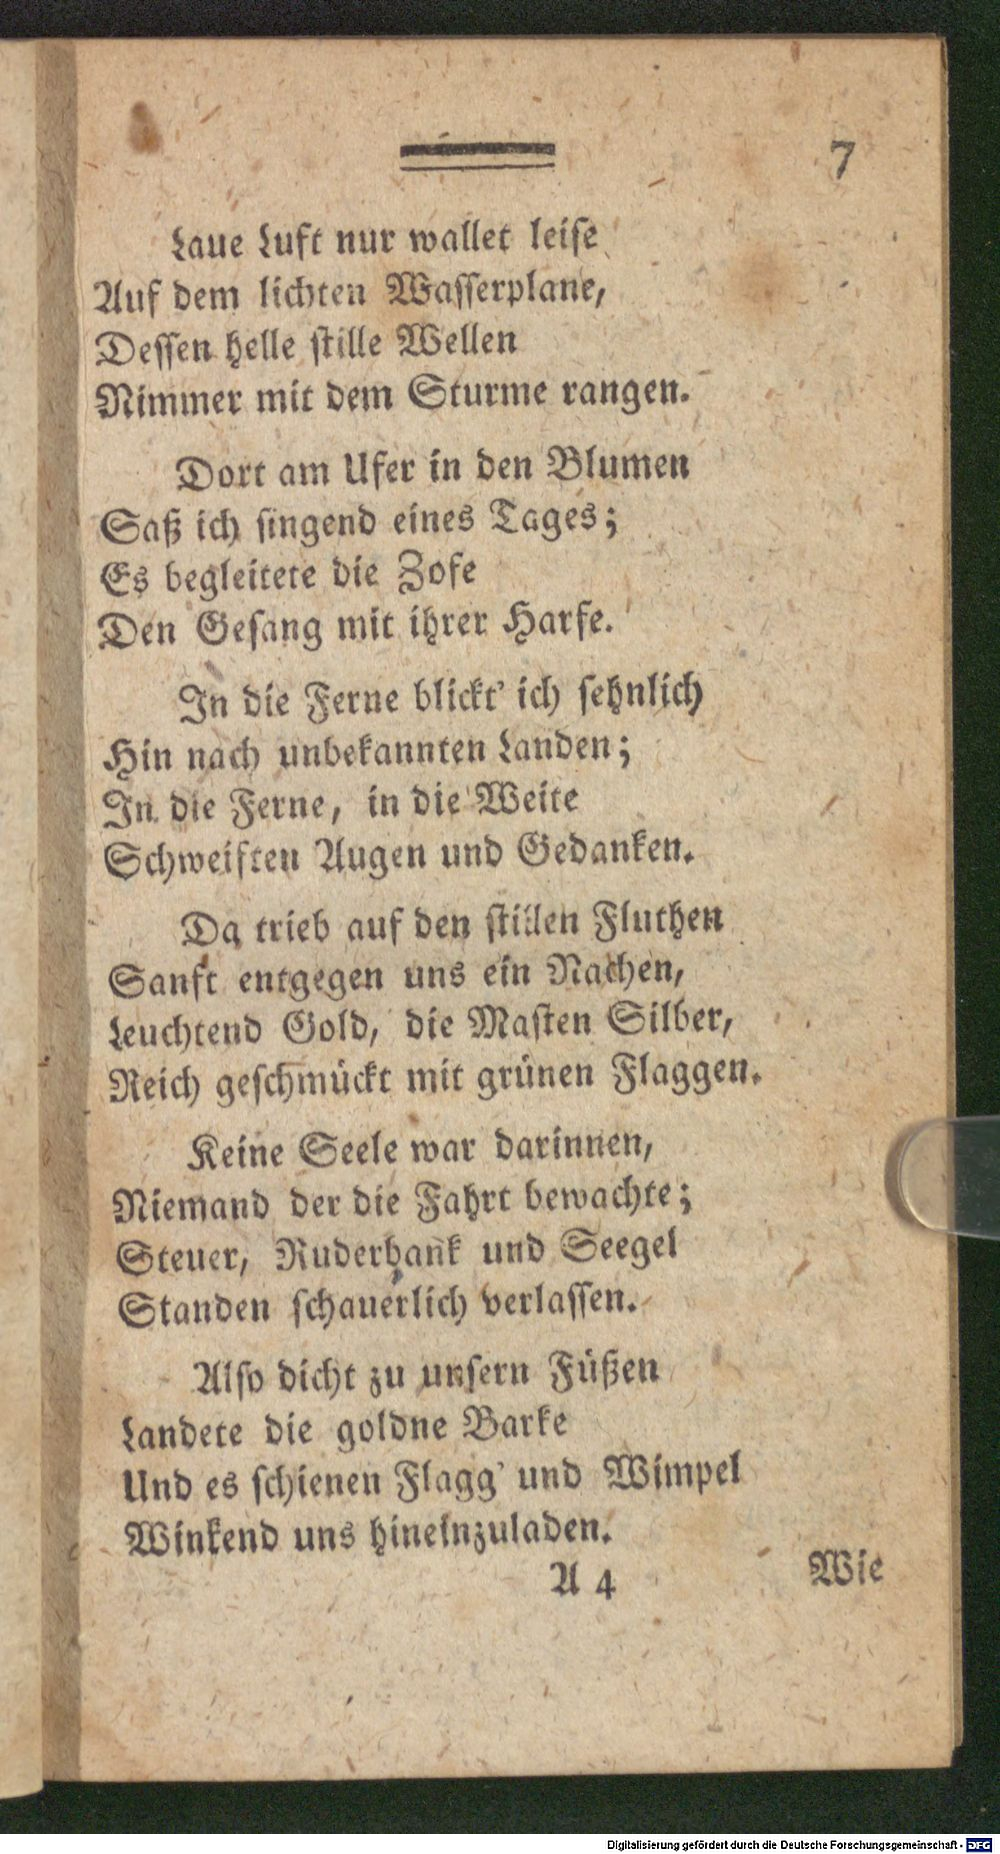 7
Laue Luft nur wallet leise
Auf dem lichten Wasserplane,
Dessen helle stille Wellen
Nimmer mit dem Sturme rangen.
Dort am Ufer in den Blumen
Saß ich singend eines Tages;
Es begleitete die Zofe
Den Gesang mit ihrer Harfe.
In die Ferne blickt' ich sehnlich
Hin nach unbekannten Landen;
In die Ferne, in die Weite
Schweiften Augen und Gedanken.
Da trieb auf den stillen Fluthen
Sanft entgegen uns ein Nachen,
Leuchtend Gold, die Masten Silber,
Reich geschmückt mit grünen Flaggen.
Keine Seele war darinnen,
Niemand der die Fahrt bewachte;
Steuer, Ruderbank und Seegel
Standen schauerlich verlassen.
Also dicht zu unsern Füßen
Landete die goldne Barke
Und es schienen Flagg' und Wimpel
Winkend uns hineinzuladen.
A 4 Wie
Digitalisierung gefördert durch die Deutsche Forschungsgemeinschaft - DFG